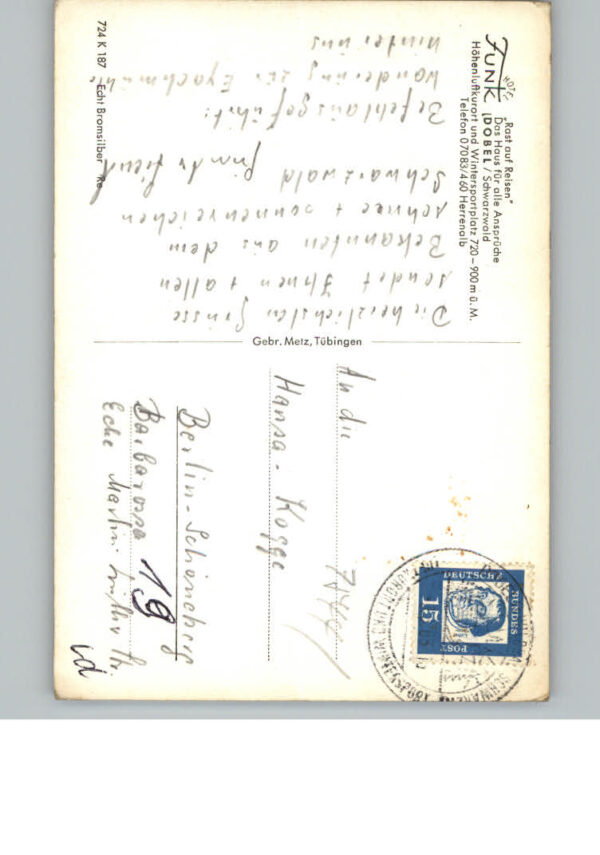 HOTEL
FUNK
DOBEL / Schwarzwald
„Rast auf Reisen"
Das Haus für alle Ansprüche
Höhenluftkurort und Wintersportplatz 720–900 m ü. M.
Telefon 07083/460 Herrenalb
Die herzlichsten Grüsse
sendet Ihnen + allen
Bekannten aus dem
schnee + sonnenreichen
Schwarzwald
Befehl ausgeführt:
Wanderung zur Eyachmühle
hinter uns
724 K 187
Echt Bromsilber
Gebr. Metz, Tübingen
DEUTSCHE BUNDESPOST
15
An die
Hansa-Kogge
Berlin-Schöneberg
Barbarossa 19
Ecke Martin Luther